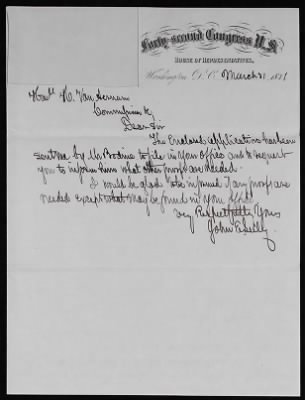 Forty second Congress U.S.
House of Representatives,
Washington, D.C. March 31, 1871
H. Van Aernam
Commissioner &c
Dear Sir
The Enclosed application has been
sent me by Mr Bodine to file in your office and to request
you to inform him what other proofs are needed.
I would be glad to be informed if any proofs are
needed except what may be found in your office
Very Respectfully Yours
John